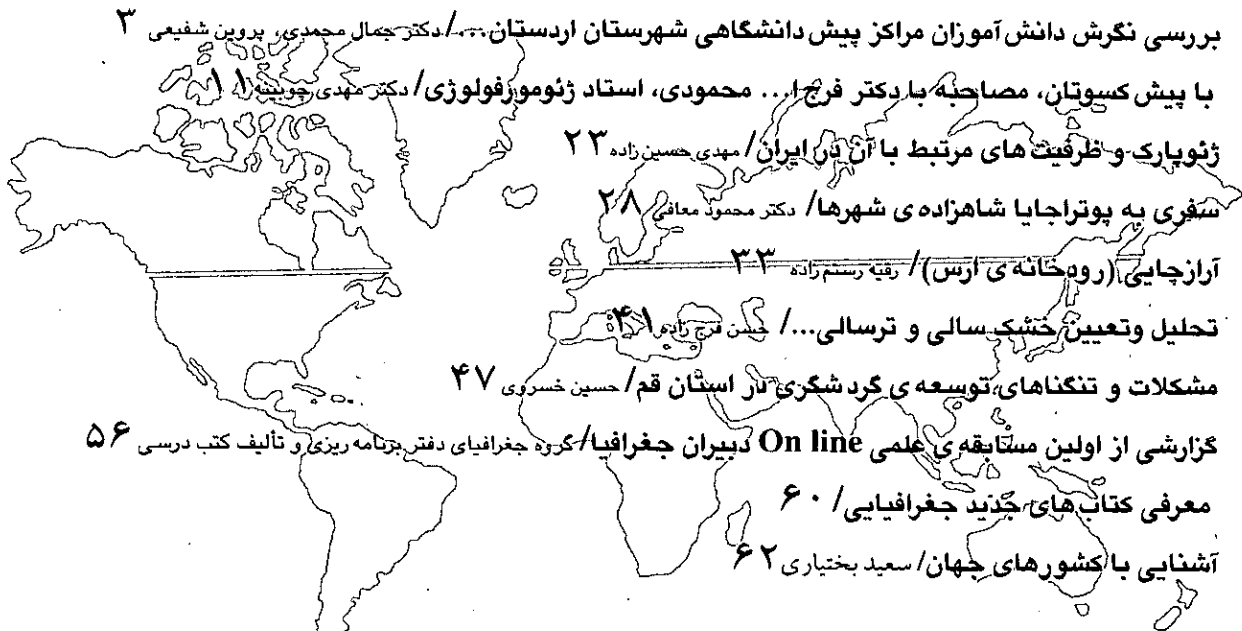 بررسی نگرش دانش آموزان مراکز پیش دانشگاهی شهرستان اردستان.../ دکتر جمال محمدی، پروین شفیعی ۳
با پیش کسوتان، مصاحبه با دکتر فرج ا... محمودی، استاد ژئومورفولوژی/ دکتر مهدی چوبینه ۱۱
ژئوپارک و ظرفیت های مرتبط با آن در ایران/ مهدی حسین زاده ۲۳
سفری به پوتراجایا شاهزاده ی شهرها/ دکتر محمود معافی ۲۸
آرازچایی (رودخانه ی ارس)/ رقیه رستم زاده ۳۳
تحلیل وتعیین خشک سالی و ترسالی.../ حسن فرج زاده ۴۱
مشکلات و تنگناهای توسعه ی گردشگری در استان قم/ حسین خسروی ۴۷
گزارشی از اولین مسابقه ی علمی On line دبیران جغرافیا/ گروه جغرافیای دفتر برنامه ریزی و تألیف کتب درسی ۵۶
معرفی کتاب های جدید جغرافیایی/ ۶۰
آشنایی با کشورهای جهان/ سعید بختیاری ۶۲